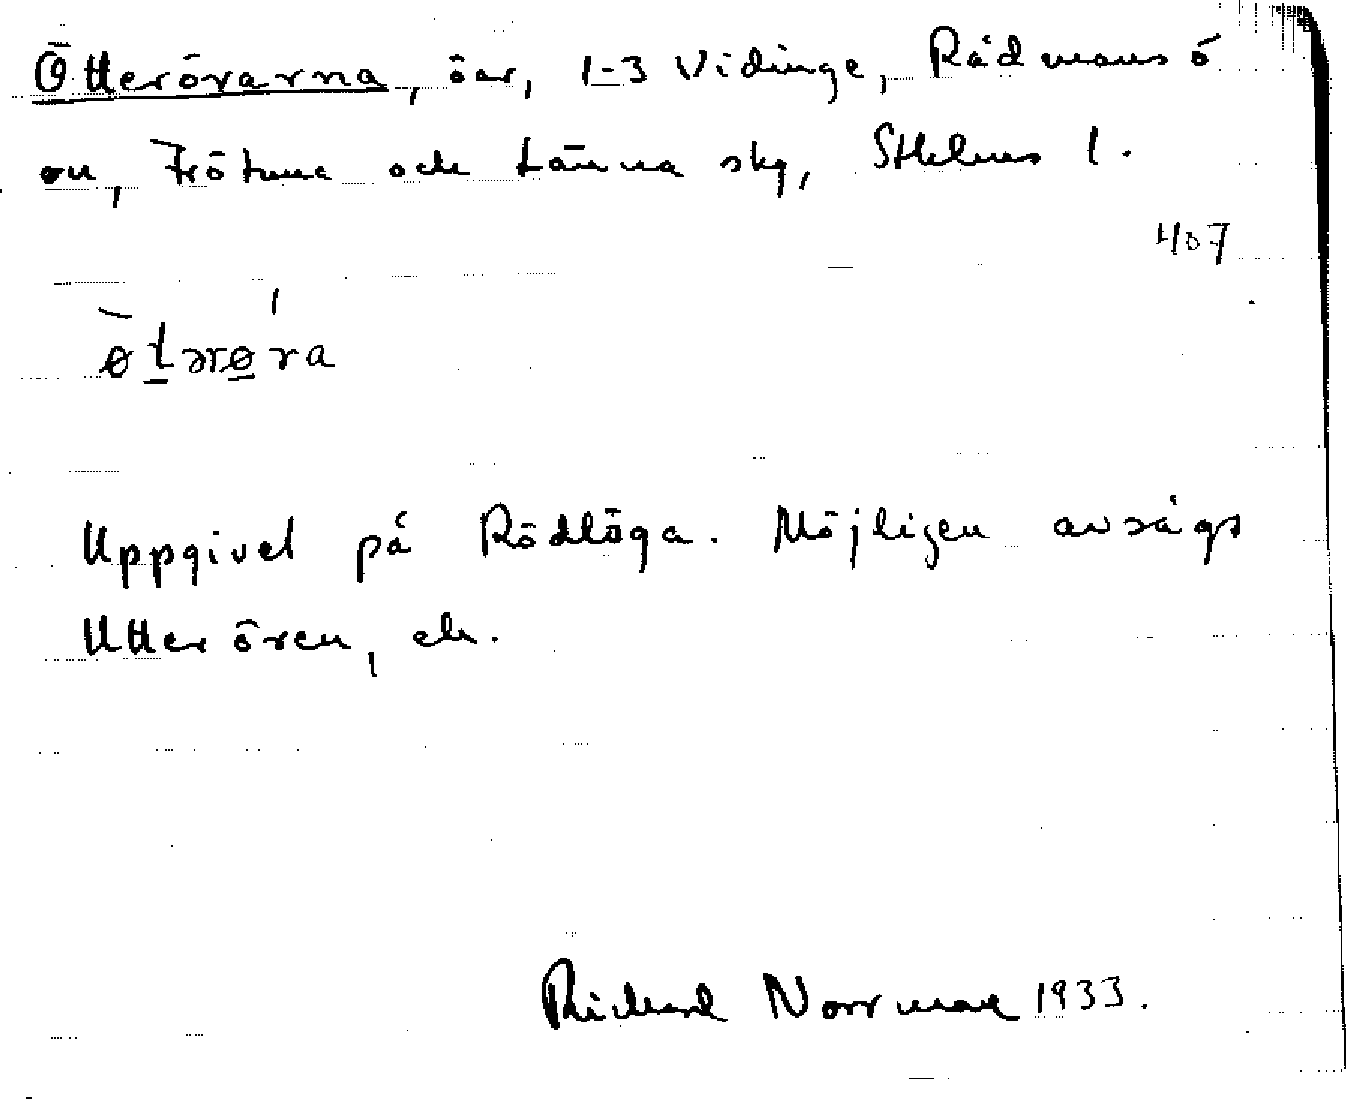 Ötterörarna, öar, 1-3 Vidinge, Rådmansö
sn, Frötuna och Länna skg, Sthlms l.
407
øtərøra
Uppgivet på Rödlöga. Möjligen avságs
Utterören, ek.
Rickard Norrman 1933.